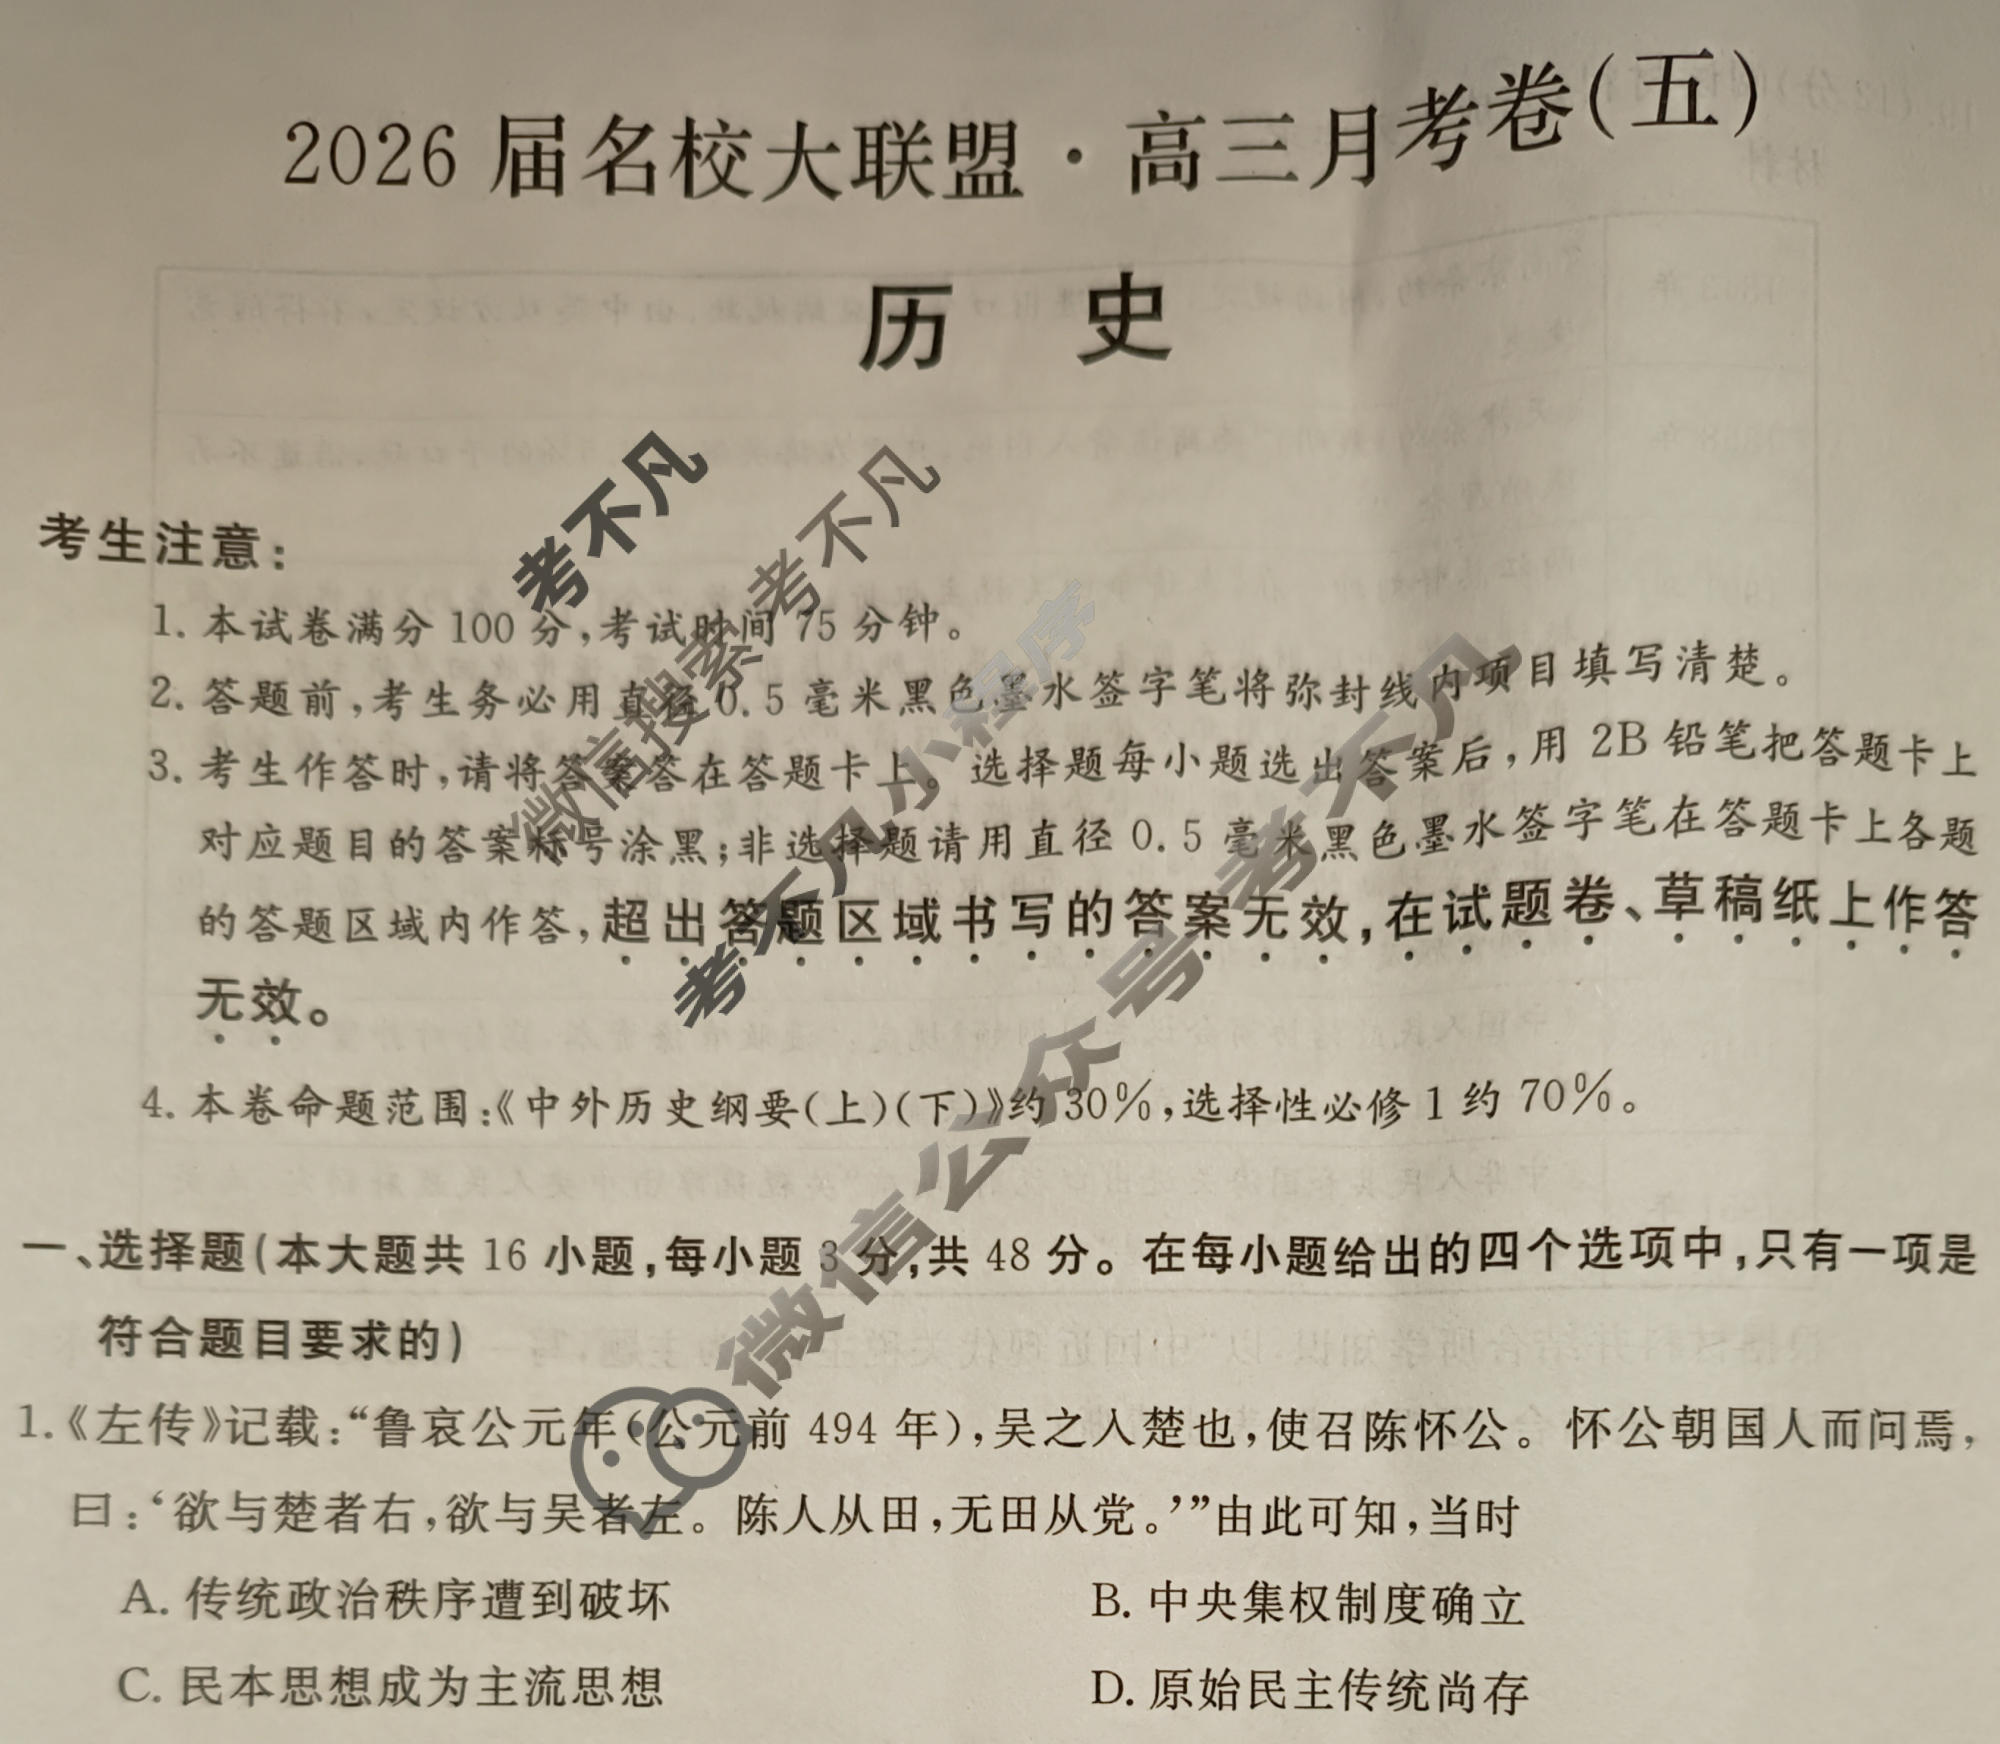 2026届名校大联盟·高三月考卷(五)
历 史
考生注意:
1. 本试卷满分100分,考试时间75分钟。
2. 答题前,考生务必用直径0.5毫米黑色墨水签字笔将弥封线内项目填写清楚。
3. 考生作答时,请将答案答在答题卡上。选择题每小题选出答案后,用2B铅笔把答题卡上
对应题目的答案标号涂黑;非选择题请用直径0.5毫米黑色墨水签字笔在答题卡上各题
的答题区域内作答,超出答题区域书写的答案无效,在试题卷、草稿纸上作答
无效。
4. 本卷命题范围:《中外历史纲要(上)(下)》约30%,选择性必修1约70%。
一、选择题(本大题共16小题,每小题3分,共48分。在每小题给出的四个选项中,只有一项是
符合题目要求的)
1.《左传》记载:“鲁哀公元年(公元前494年),吴之入楚也,使召陈怀公。怀公朝国人而问焉,
曰:‘欲与楚者右,欲与吴者左。陈人从田,无田从党。’”由此可知,当时
A. 传统政治秩序遭到破坏
B. 中央集权制度确立
C. 民本思想成为主流思想
D. 原始民主传统尚存
考不凡
微信搜索 考不凡
考不凡小程序
微信公众号 考不凡